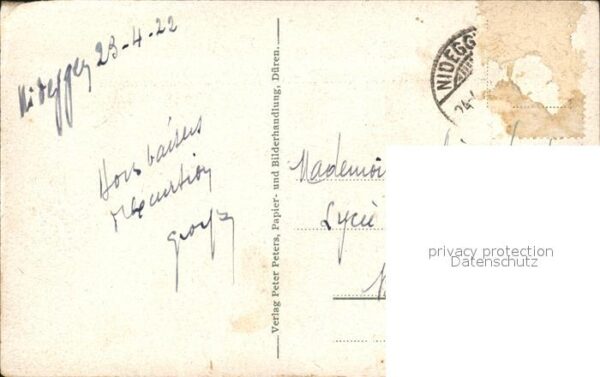 Nideggen 23-4-22
baisers
d'excursion
Verlag Peter Peters, Papier- und Bilderhandlung, Düren.
NIDEGG
24.
Mademoi
Lycée
privacy protection
Datenschutz